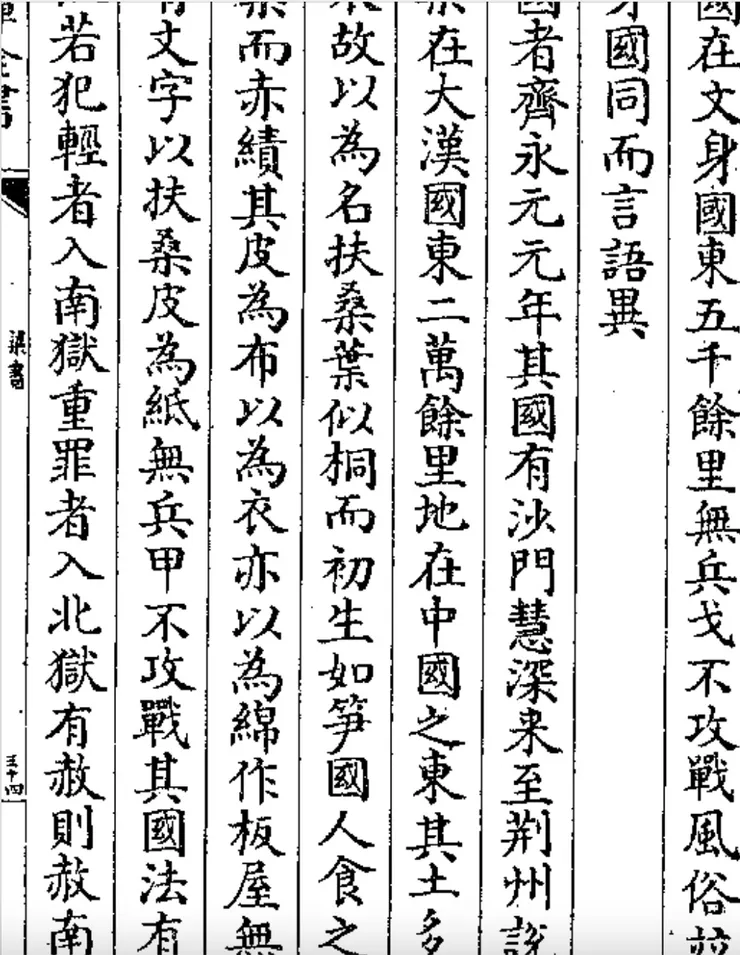 國在文身國東五千餘里無兵戈不攻戰風俗
身國同而言語異
國者齊永元元年其國有沙門慧深来至荆州說
桑在大漢國東二萬餘里地在中國之東其土多
故以為名扶桑葉似桐而初生如笋國人食之
而赤績其皮為布以為衣亦以為綿作板屋無
有文字以扶桑皮為紙無兵甲不攻戰其國法有
若犯輕者入南獄重罪者入北獄有赦則赦南
全書
梁書
五十四